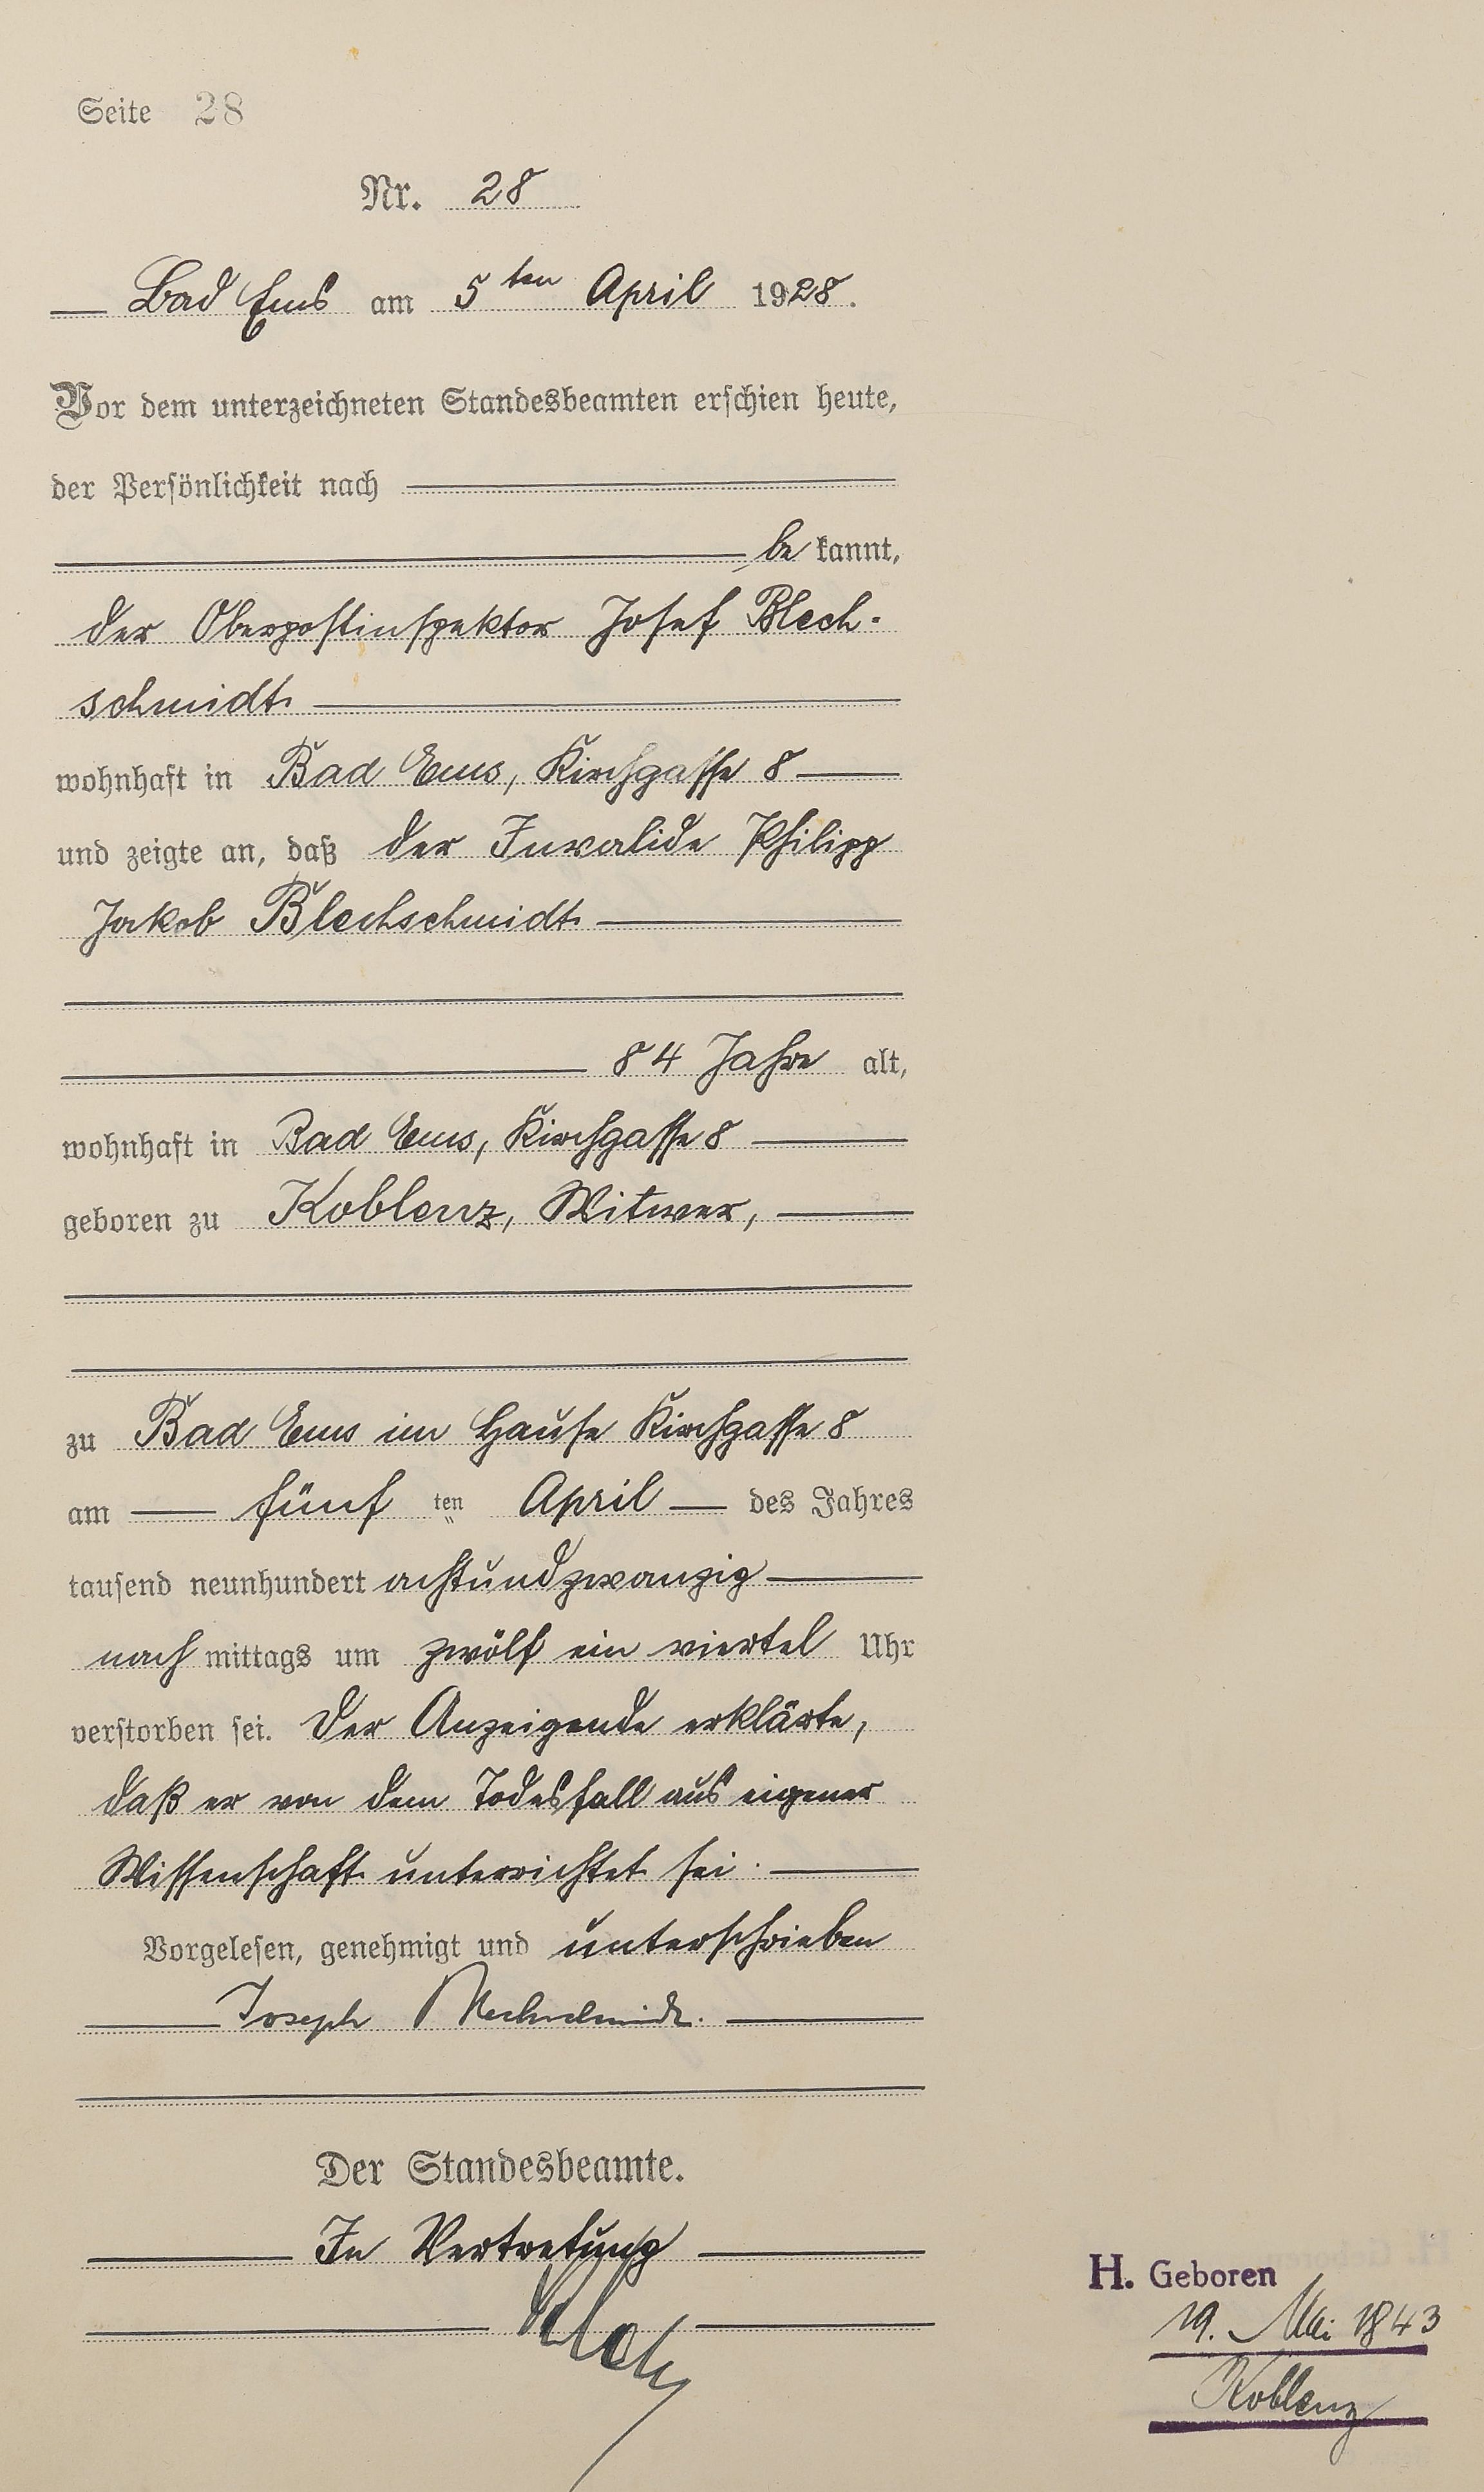 Seite 28
Nr. 28
Bad Ems am 5ten April 1928.
Vor dem unterzeichneten Standesbeamten erschien heute,
der Persönlichkeit nach
be kannt,
der Oberpostinspektor Josef Blech-
schmidt
wohnhaft in Bad Ems, Kirchgasse 8
und zeigte an, daß der Invalide Philipp
Jakob Blechschmidt
84 Jahre alt,
wohnhaft in Bad Ems, Kirchgasse 8
geboren zu Koblenz, Witwer,
zu Bad Ems im Hause Kirchgasse 8
am fünf ten April des Jahres
tausend neunhundert achtundzwanzig
nach mittags um zwölf ein viertel Uhr
verstorben sei. Der Anzeigende erklärte,
daß er von dem Todesfall aus eigener
Wissenschaft unterrichtet sei.
Vorgelesen, genehmigt und unterschrieben
Joseph Blechschmidt.
Der Standesbeamte.
In Vertretung
H. Geboren
19. Mai 1843
Koblenz